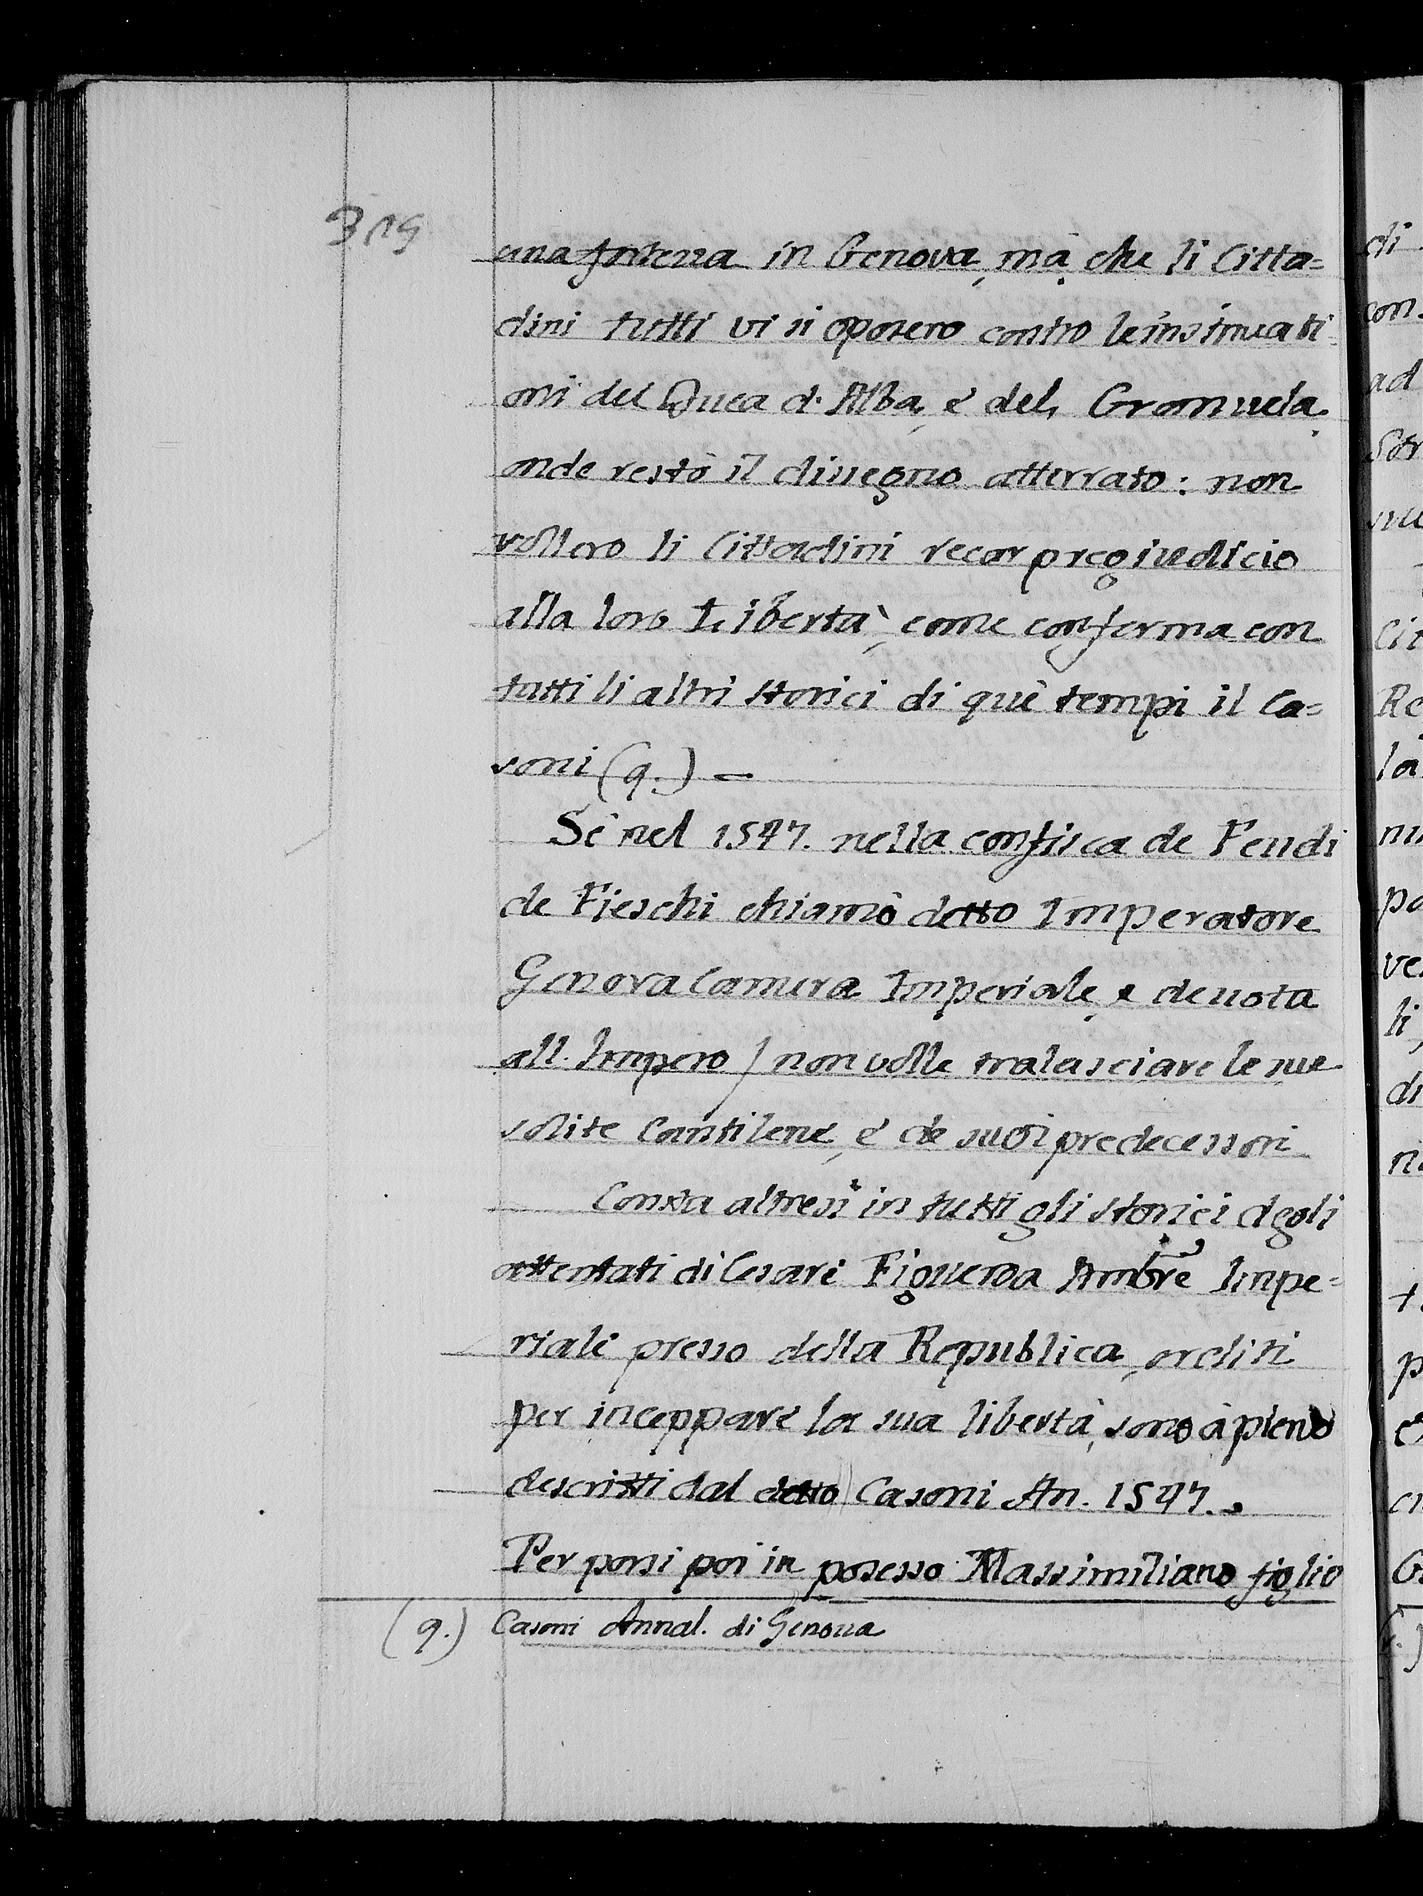 una fortezza in Genova, mà che li Citta=
dini tutti vi si oposero contro le insinuati=
oni del Duca d'Alba, e del Granuela,
onde restò il dissegno atterrato: non
vollero li Cittadini recar pregiudicio
alla loro Libertà, come conferma con
tutti li altri storici di què tempi il Ca=
soni (q.)
Sè nel 1547. nella confisca de Feudi
de Fieschi chiamò detto Imperatore
Genova Camera Imperiale, e deuota
all'Impero / non volle tralasciare le sue
solite Cantilene, e de suoi predecessori
Consta altresì in tutti gli storici degli
attentati di Cesare Figueroa Ambre Impe=
riale presso della Republica, orditi
per inceppare la sua libertà, sono à pieno
descritti dal detto Casoni An. 1547.
Per porsi poi in posesso Massimiliano figlio
(q.) Casoni Annal. di Genoua
di
con
ad
Re
la
pa
ve
li,
di